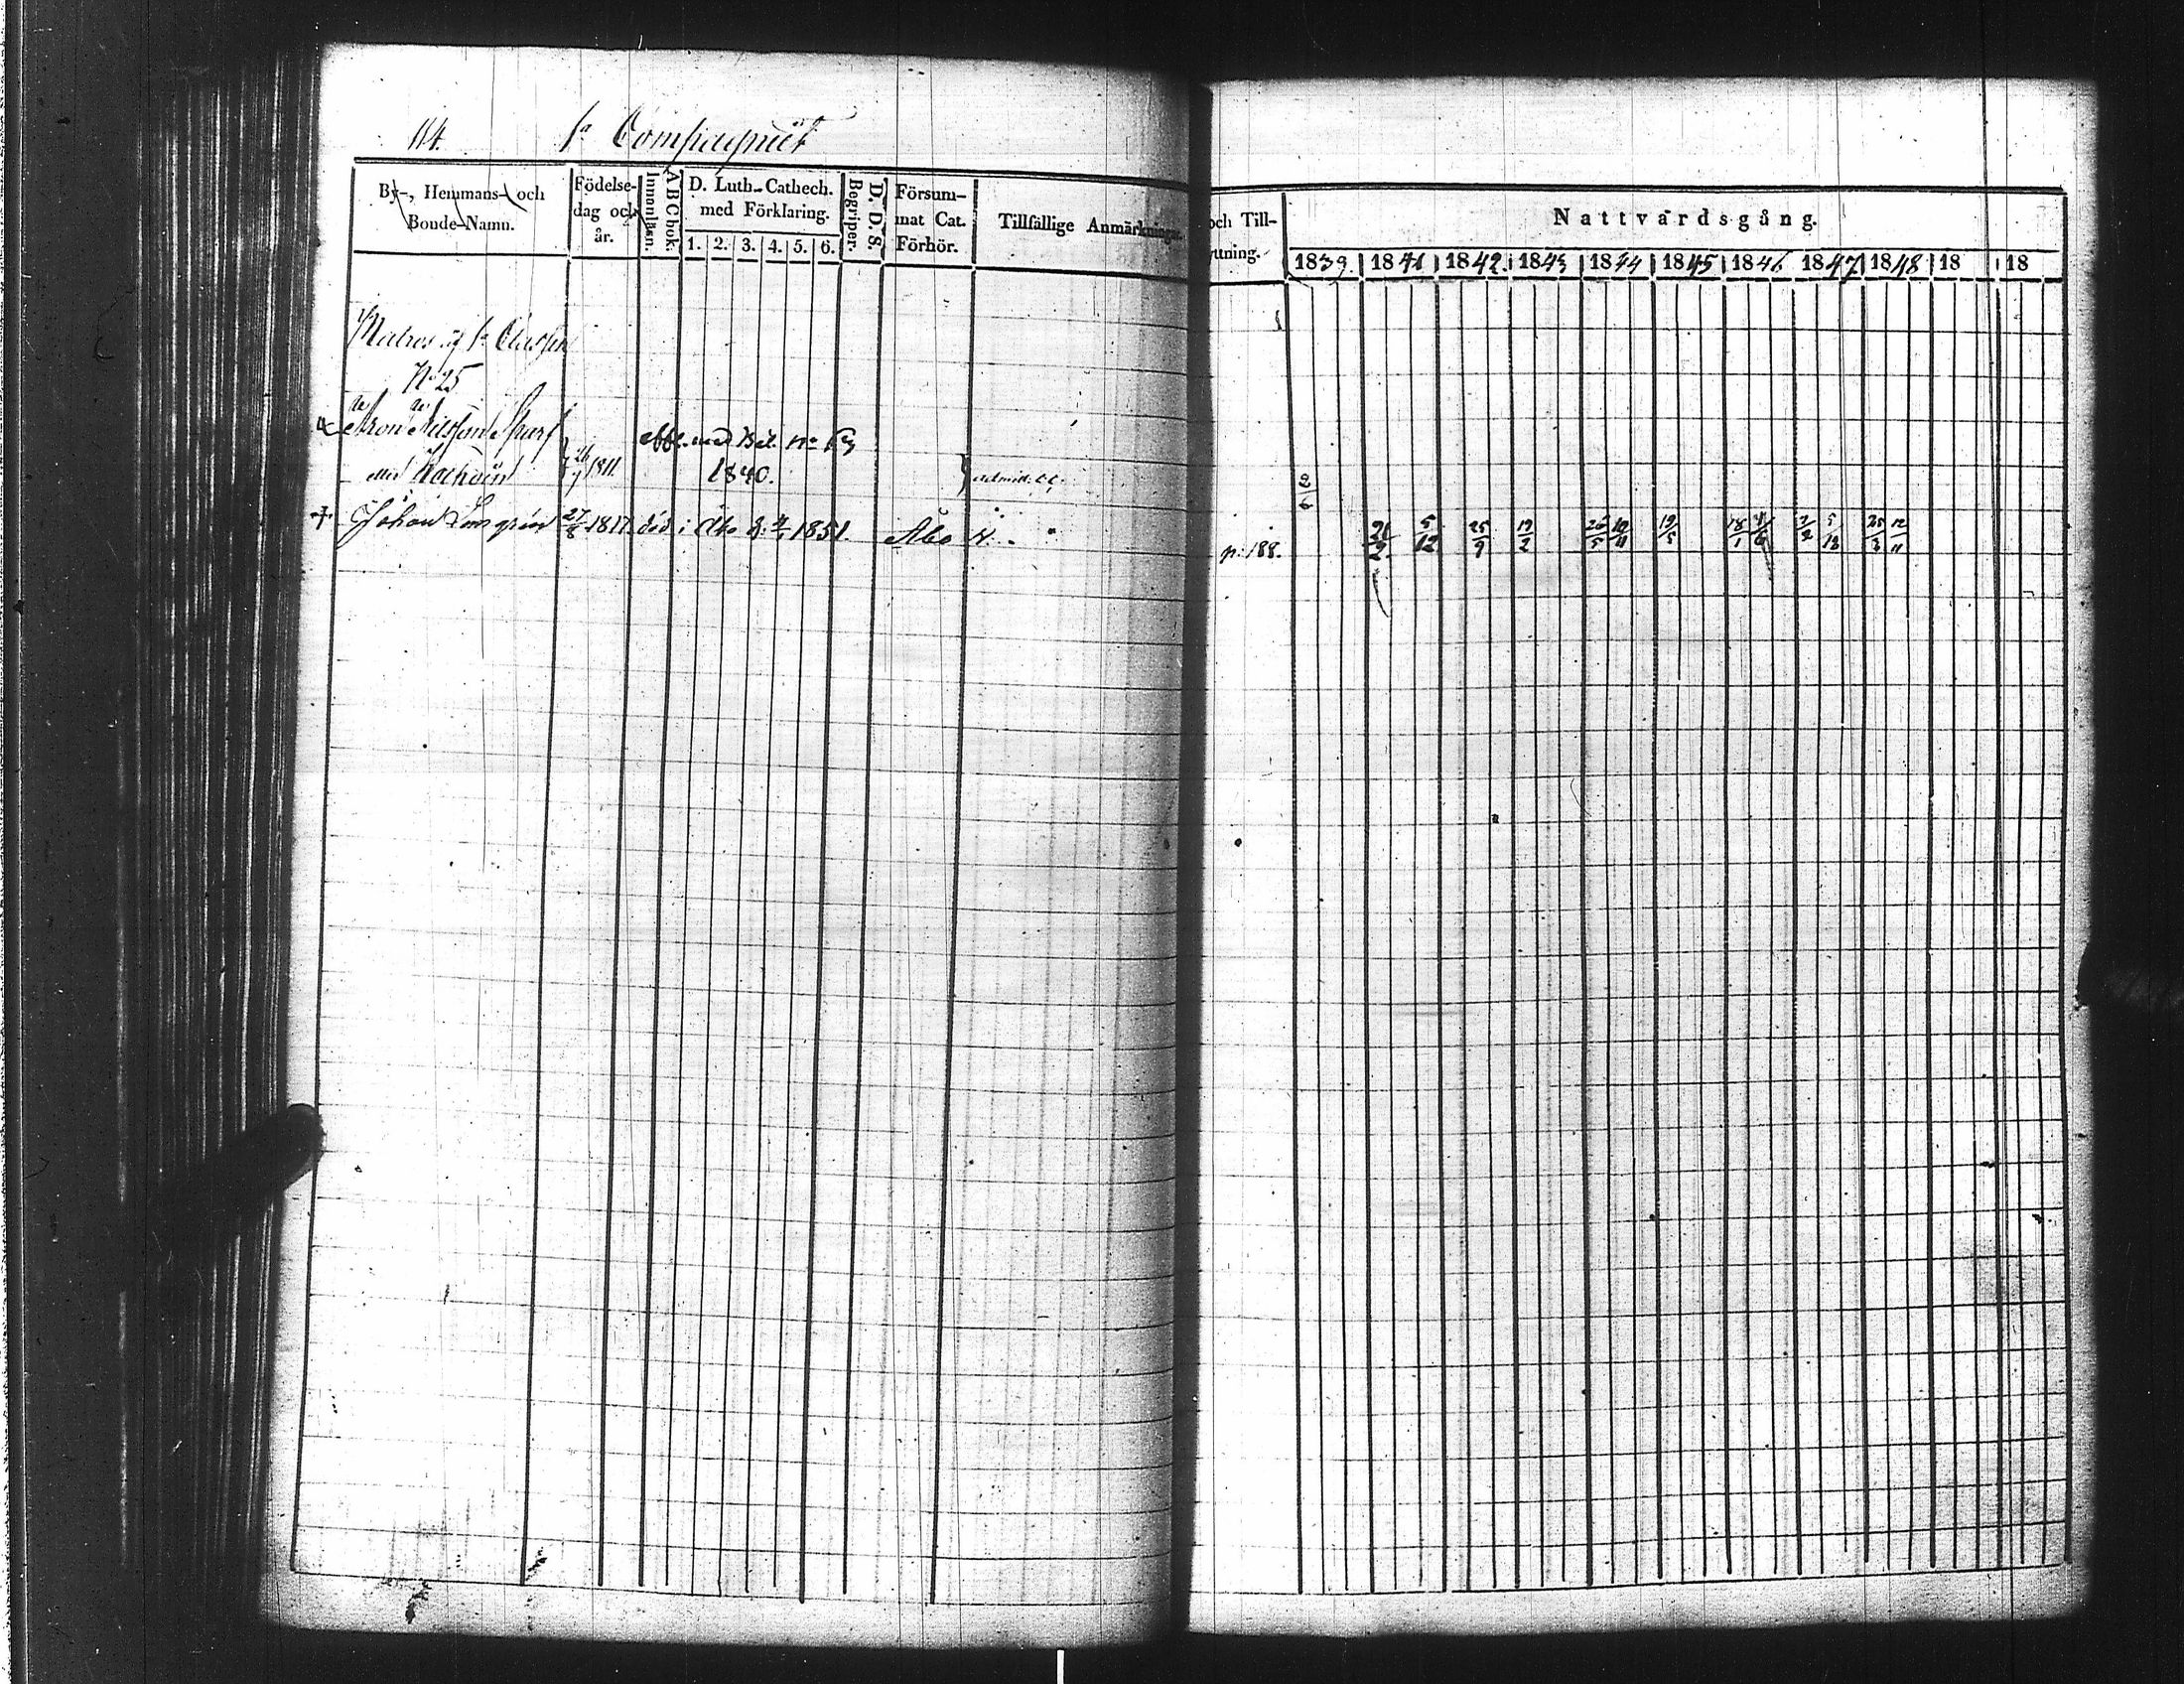 114.
1a Compagniet
By-, Hemmans- och Bonde-Namn.
Födelse-dag och år.
Innanläsn.
ABC bok.
D. Luth. Cathech. med Förklaring.
1. 2. 3. 4. 5. 6.
Begriper.
D. D. S.
Försum-mat Cat. Förhör.
Tillfällige Anmärkningar.
och Till-
ttning.
Nattvardsgång.
1839. 1841 1842. 1843 1844 1845 1846 1847 1848 18 18
Matros af 1a Classen
No 25
Aron Nilsson Sparf
26/7 1811
med Bet. no
1840.
2/6
Johan 27/8 1817. död i Åbo d. 4/1 1851. Åbo
p. 188.
21/2 5/12 25/9 19/2 26/5 10/11 19/5 18/1 7/2 5/12 25/3 12/11